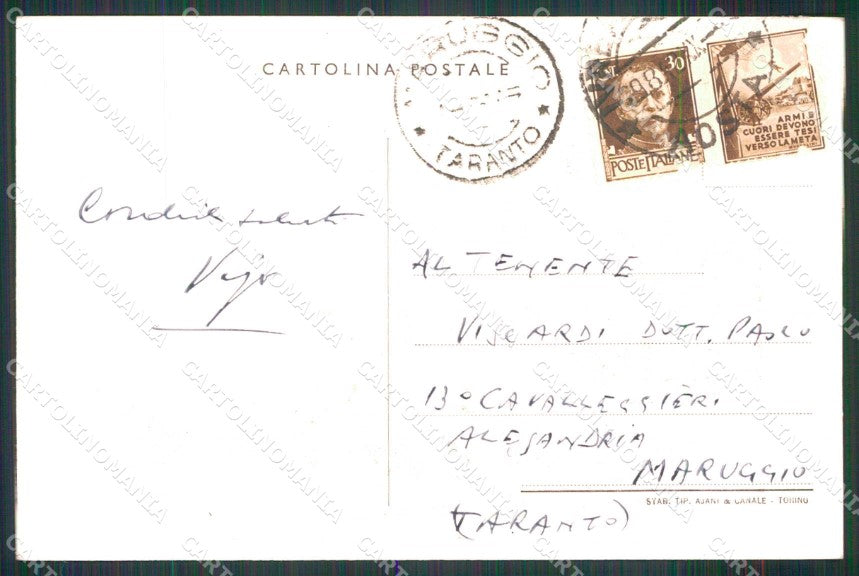 CARTOLINA POSTALE
MARUGGIO
TARANTO
30
POSTE ITALIANE
AOSTA
ARMI E
CUORI DEVONO
ESSERE TESI
VERSO LA META
Cordiali saluti
AL TENENTE
VISCARDI DOTT. PAOLO
13º CAVALLEGGIERI
ALESSANDRIA
MARUGGIO
STAB. TIP. AJANI & CANALE - TORINO
(TARANTO)
CARTOLINOMANIA